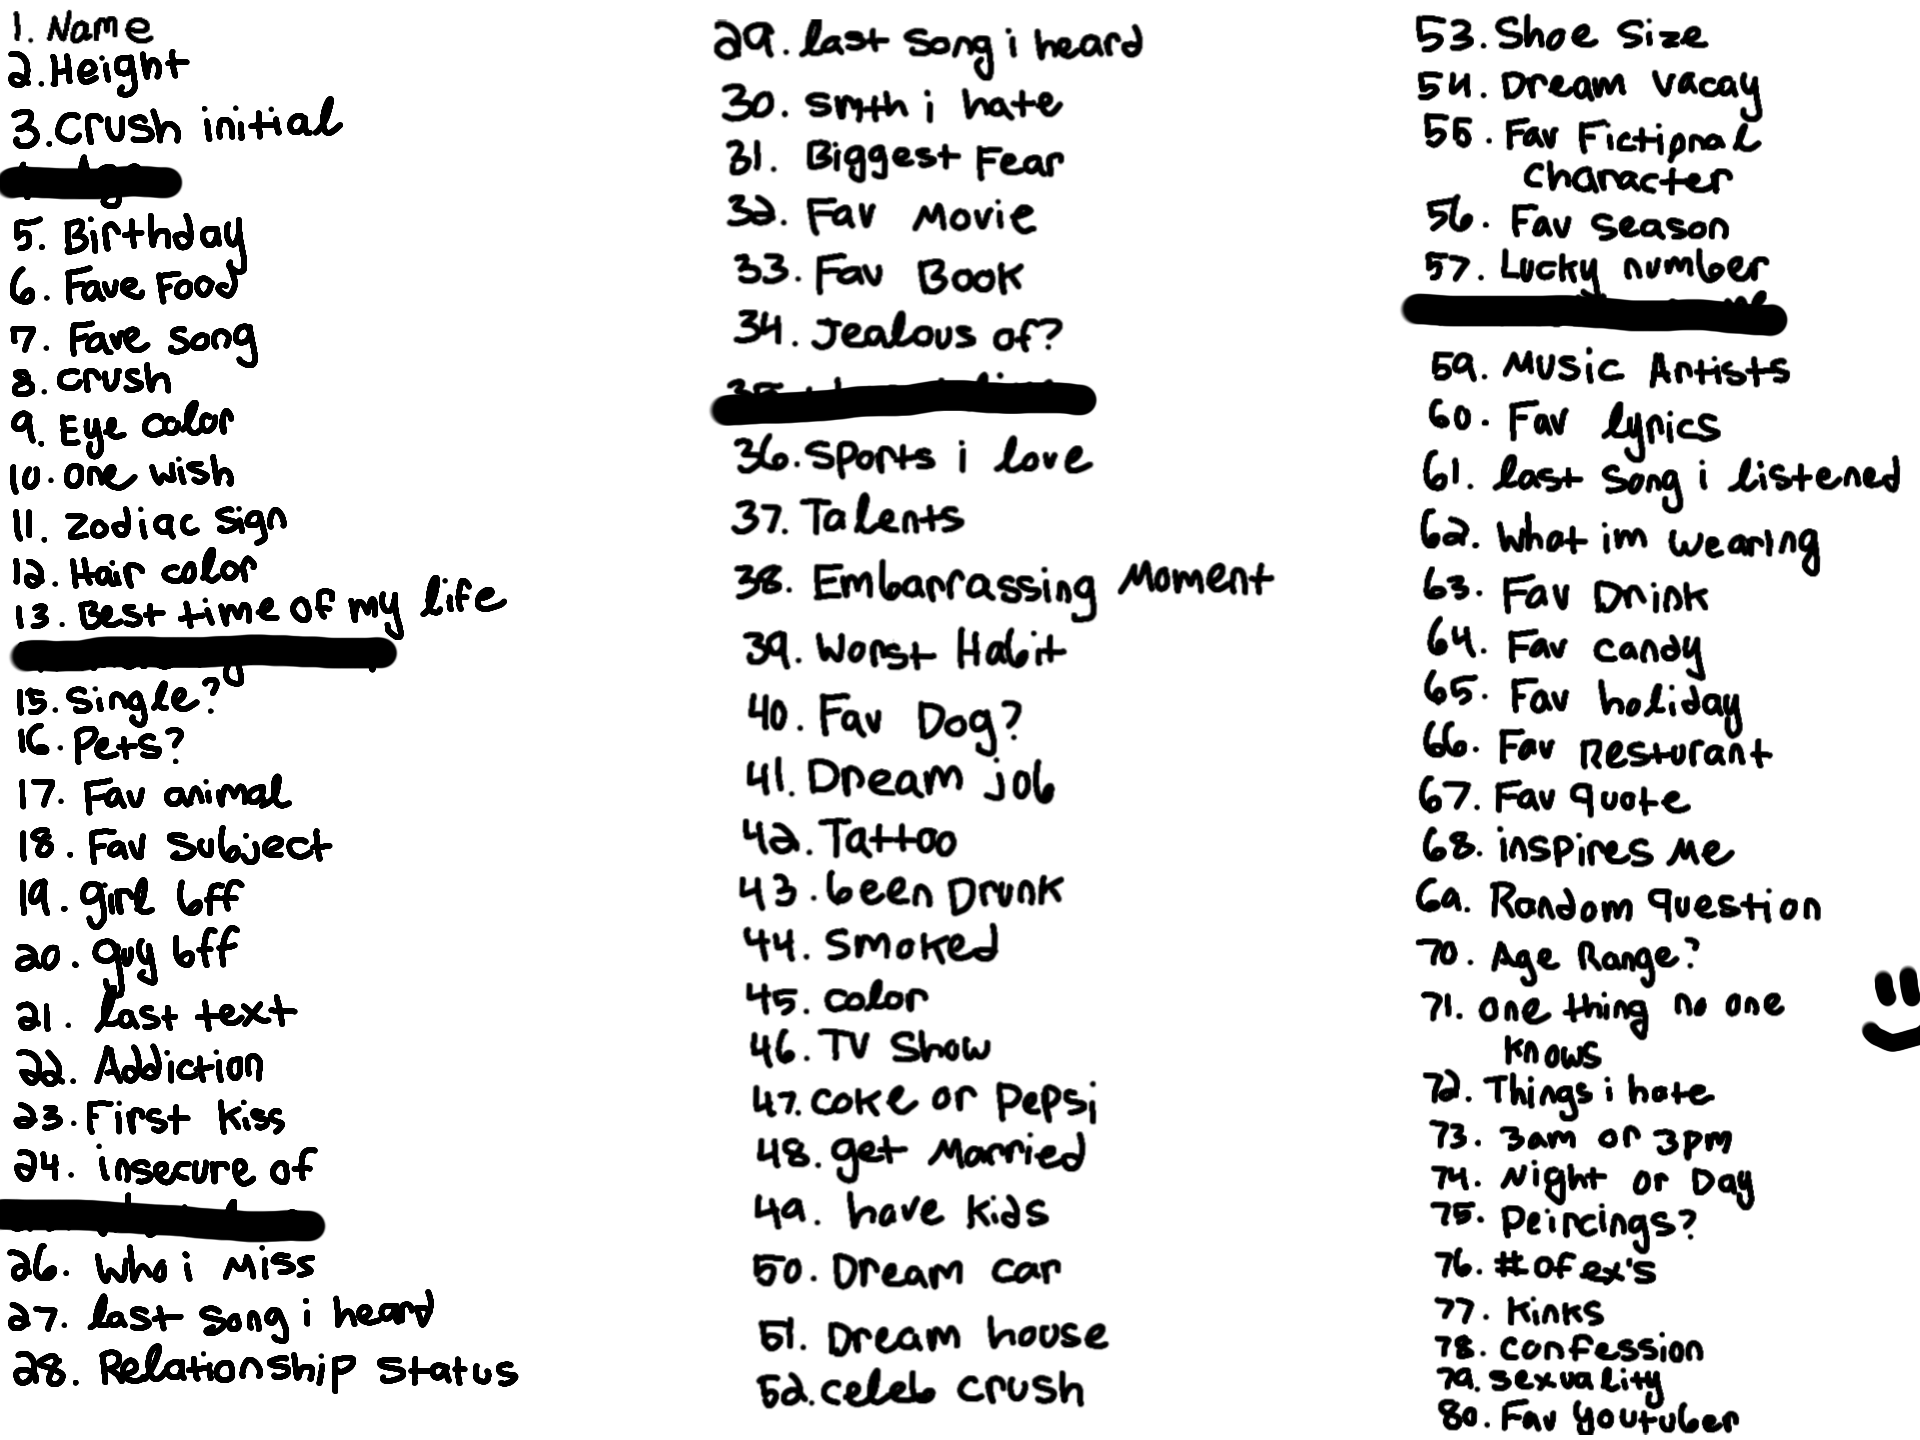 1. Name
2. Height
3. Crush initial
5. Birthday
6. Fave Food
7. Fave song
8. crush
9. Eye color
10. one wish
11. zodiac sign
12. Hair color
13. Best time of my life
15. Single?
16. Pets?
17. Fav animal
18. Fav subject
19. girl bff
20. guy bff
21. last text
22. Addiction
23. First kiss
24. insecure of
26. Who i Miss
27. last song i heard
28. Relationship status
29. last song i heard
30. smth i hate
31. Biggest Fear
32. Fav Movie
33. Fav Book
34. Jealous of?
36. Sports i love
37. Talents
38. Embarrassing Moment
39. Worst Habit
40. Fav Dog?
41. Dream job
42. Tattoo
43. been Drunk
44. Smoked
45. color
46. TV Show
47. coke or Pepsi
48. get Married
49. have kids
50. Dream car
51. Dream house
52. celeb crush
53. Shoe Size
54. Dream vacay
55. Fav Fictional
character
56. Fav season
57. Lucky number
59. Music Artists
60. Fav lyrics
61. last song i listened
62. What im wearing
63. Fav Drink
64. Fav candy
65. Fav holiday
66. Fav Resturant
67. Fav quote
68. inspires Me
69. Random question
70. Age Range?
71. one thing no one
knows
72. Things i hate
73. 3am or 3pm
74. Night or Day
75. Peircings?
76. # of ex's
77. Kinks
78. confession
79. sexuality
80. Fav youtuber